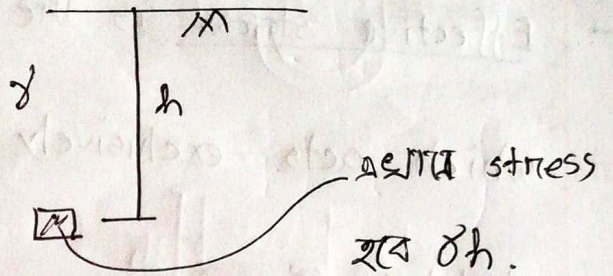 γ
h
এখানে stress
হবে γh.